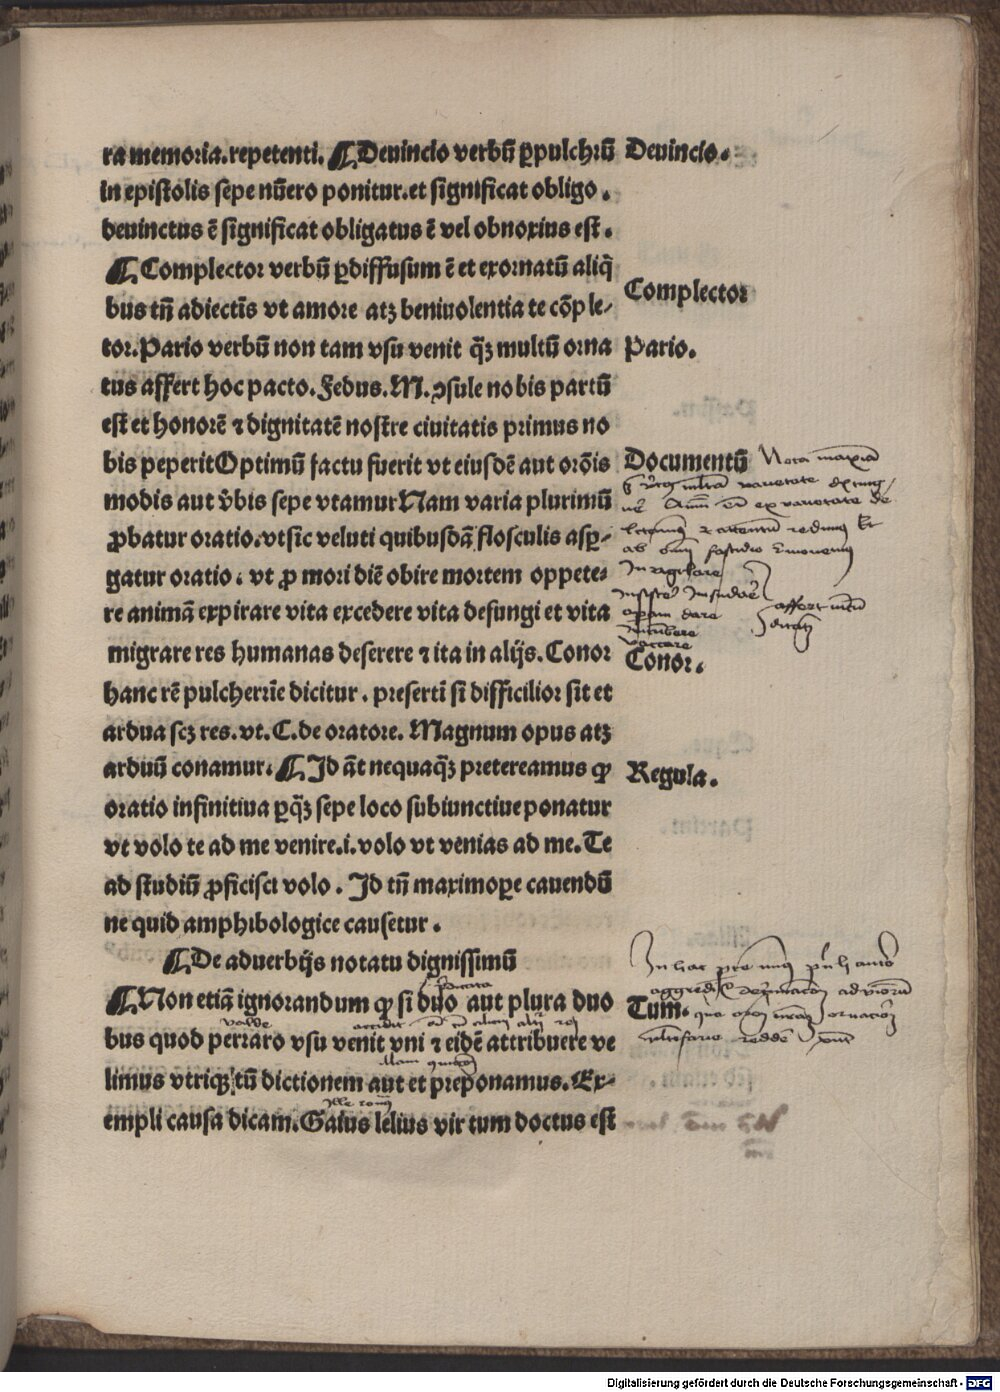 ra memoria.repetenti. ¶Deuincio verbū ꝑpulchꝝ Deuincio.
in epistolis sepe nūero ponitur.et significat obligo.
deuinctus ē significat obligatus ē vel obnoxius est.
¶Complector verbū ꝑdiffusum ē et exornatū aliq̄
Complector
bus tn̄ adiectīs vt amore atꝫ beniuolentia te cōple⸗
tor.Pario verbū non tam vsu venit q̄ꝫ multū orna
Pario.
tus affert hoc pacto.Fedus.M.ↄsule nobis partū
est et honorē ⁊ dignitatē nostre ciuitatis primus no
bis peperitOptimū factu fuerit vt eiusdē aut orōis
Documentū Nota
modis aut v̄bis sepe vtamurNam varia plurimū
ꝓbatur oratio.vtsic veluti quibusdā flosculis aspꝑ⸗
gatur oratio. vt ꝓ mori diē obire mortem oppete⸗
Inuigilare
re animā expirare vita excedere vita defungi et vita
operam dare
migrare res humanas deserere ⁊ ita in alijs.Conor
Conor.
hanc rē pulcherrīe dicitur. presertī si difficilior sit et
ardua scꝫ res.vt.C.de oratore. Magnum opus atꝫ
arduū conamur. ¶Id āt nequaq̄ꝫ pretereamus ꝙ
Regula.
oratio infinitiua ꝑq̄ꝫ sepe loco subiunctiue ponatur
vt volo te ad me venire.i.volo vt venias ad me.Te
ad studiū ꝓficisci volo. Id tn̄ maximoꝑe cauendū
ne quid amphibologice causetur.
¶De aduerbijs notatu dignissimū
¶Non etiā ignorandum ꝙ si duo aut plura duo
Tum.
valde
bus quod perraro vsu venit vni ⁊ eidē attribuere ve
limus vtriqꝫ tū dictionem aut et preponamus.Ex⸗
empli causa dicam.Gaius lelius vir tum doctus est
Digitalisierung gefördert durch die Deutsche Forschungsgemeinschaft - DFG